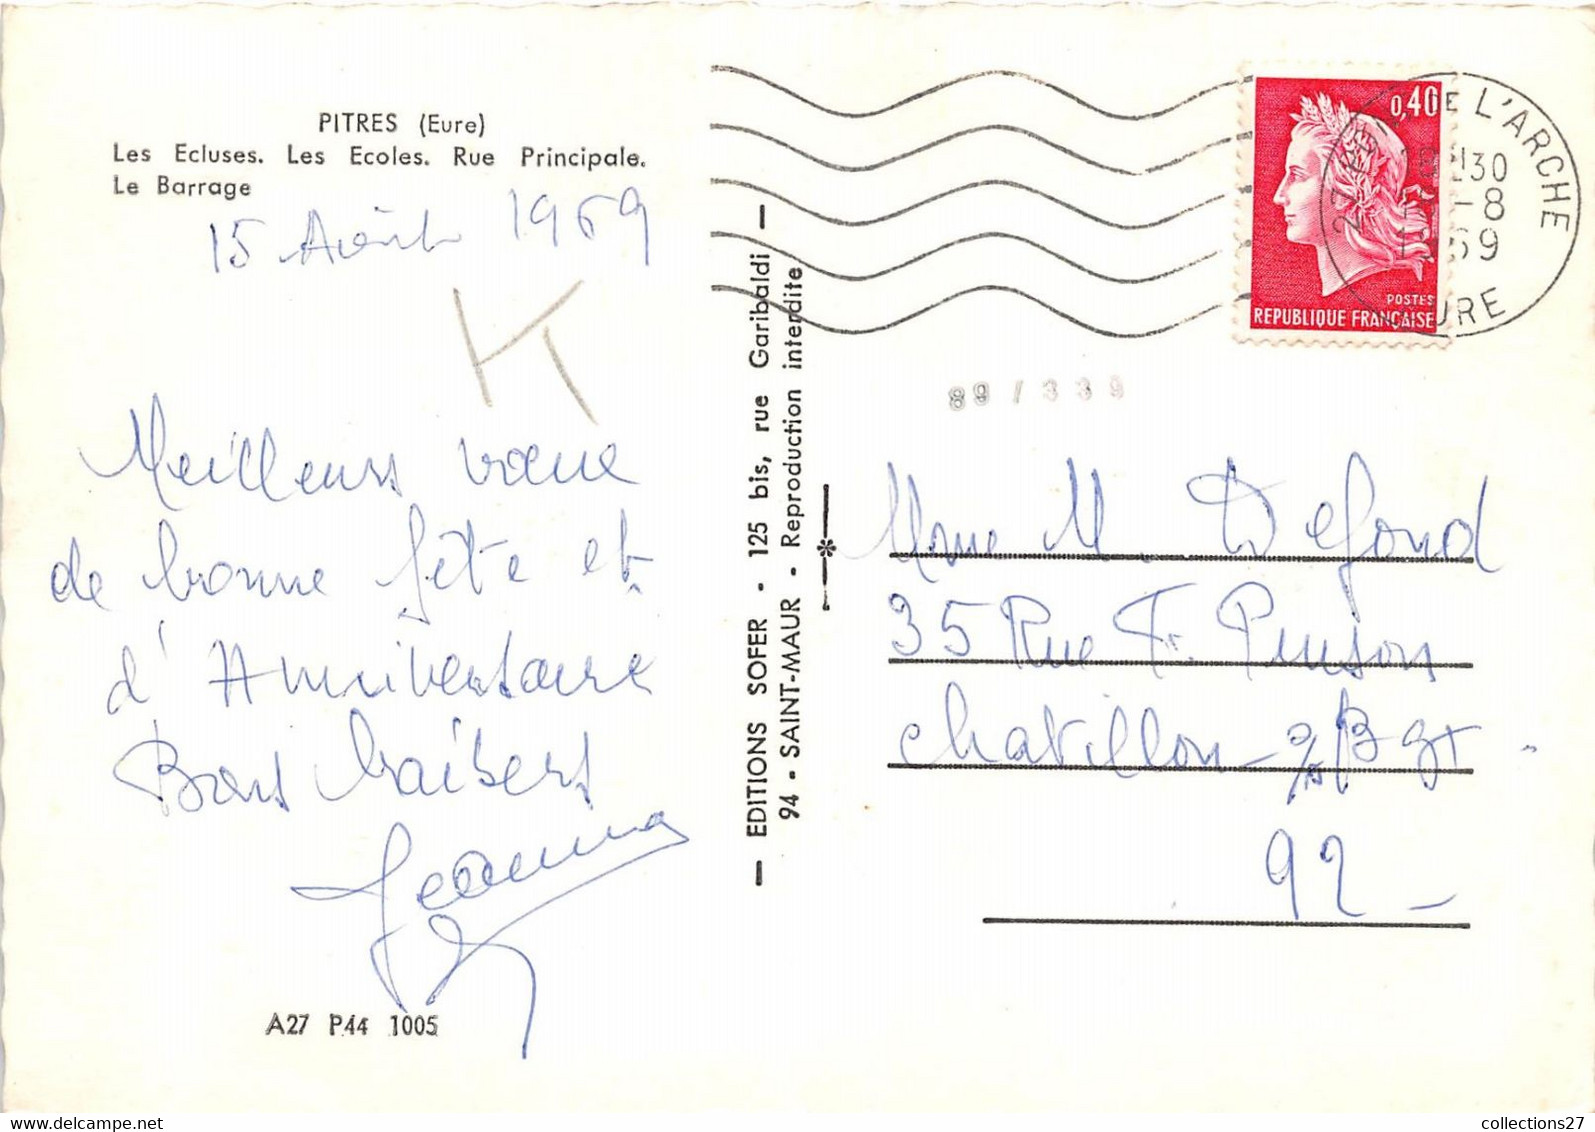 PITRES (Eure)
Les Ecluses. Les Ecoles. Rue Principale.
Le Barrage
15 Août 1969
Meilleurs vœux
de bonne fête et
d'Anniversaire
Bons baisers
Jeanne
A27 P44 1005
— EDITIONS SOFER - 125 bis, rue Garibaldi —
94 - SAINT-MAUR - Reproduction interdite
0,40
POSTES
REPUBLIQUE FRANÇAISE
27 PONT DE L'ARCHE
30
-8
1969
EURE
89 / 339
Mme M. Defond
35 Rue F. Pinson
Chatillon - s/s Bgx
92 -
collections27